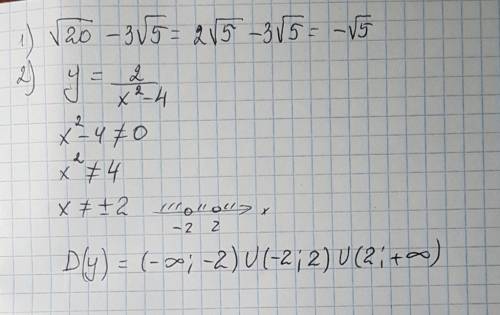 1) √20 − 3√5 = 2√5 − 3√5 = −√5
2) y = 2/(x²−4)
x²−4≠0
x²≠4
x≠±2 -2 2 x
D(y) = (−∞; −2) ∪ (−2; 2) ∪ (2; +∞)